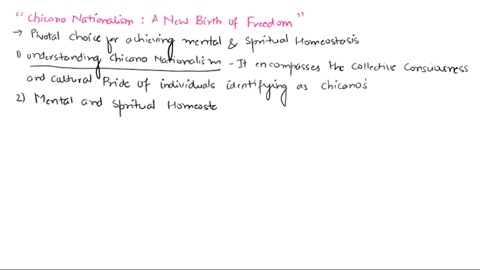 "Chicano Nationalism : A New Birth of Freedom"
→ Pivotal choice for achieving mental & Spritual Homeostasis
1) understanding Chicano Nationalism - It encompasses the collective Consuousness
and cultural Pride of individuals identifying as chicano's
2) Mental and Spritual Homeoste